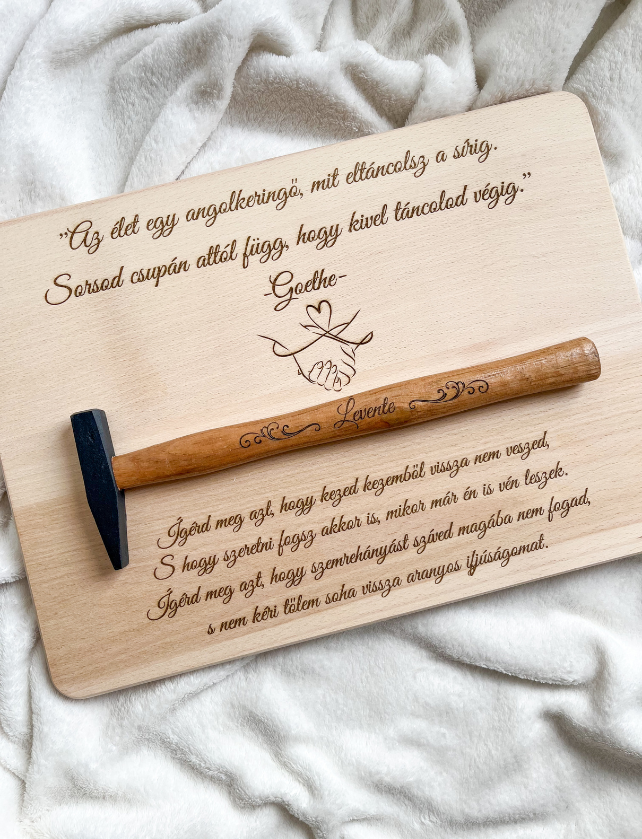 "Az élet egy angolkeringő, mit eltáncolsz a sírig.
Sorsod csupán attól függ, hogy kivel táncolod végig."
-Goethe-
Levente
Ígérd meg azt, hogy kezed kezemből vissza nem veszed,
S hogy szeretni fogsz akkor is, mikor már én is vén leszek.
Ígérd meg azt, hogy szemrehányást szíved magába nem fogad,
s nem kéri tőlem soha vissza aranyos ifjúságomat.